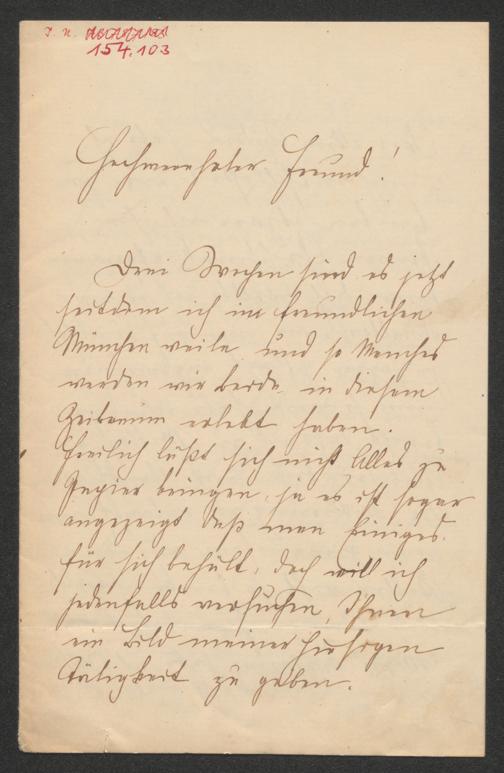 I. N.
154.103
Hochverehrter Freund!
Drei Wochen sind es jetzt
seitdem ich im freundlichen
München weile und so Manches
werden wir beide in diesem
Zeitraum erlebt haben.
Freilich läßt sich nicht Alles zu
Papier bringen, ja es ist sogar
angezeigt daß man Einiges
für sich behält, doch will ich
jedenfalls versuchen, Ihnen
ein Bild meiner hiesigen
Tätigkeit zu geben.